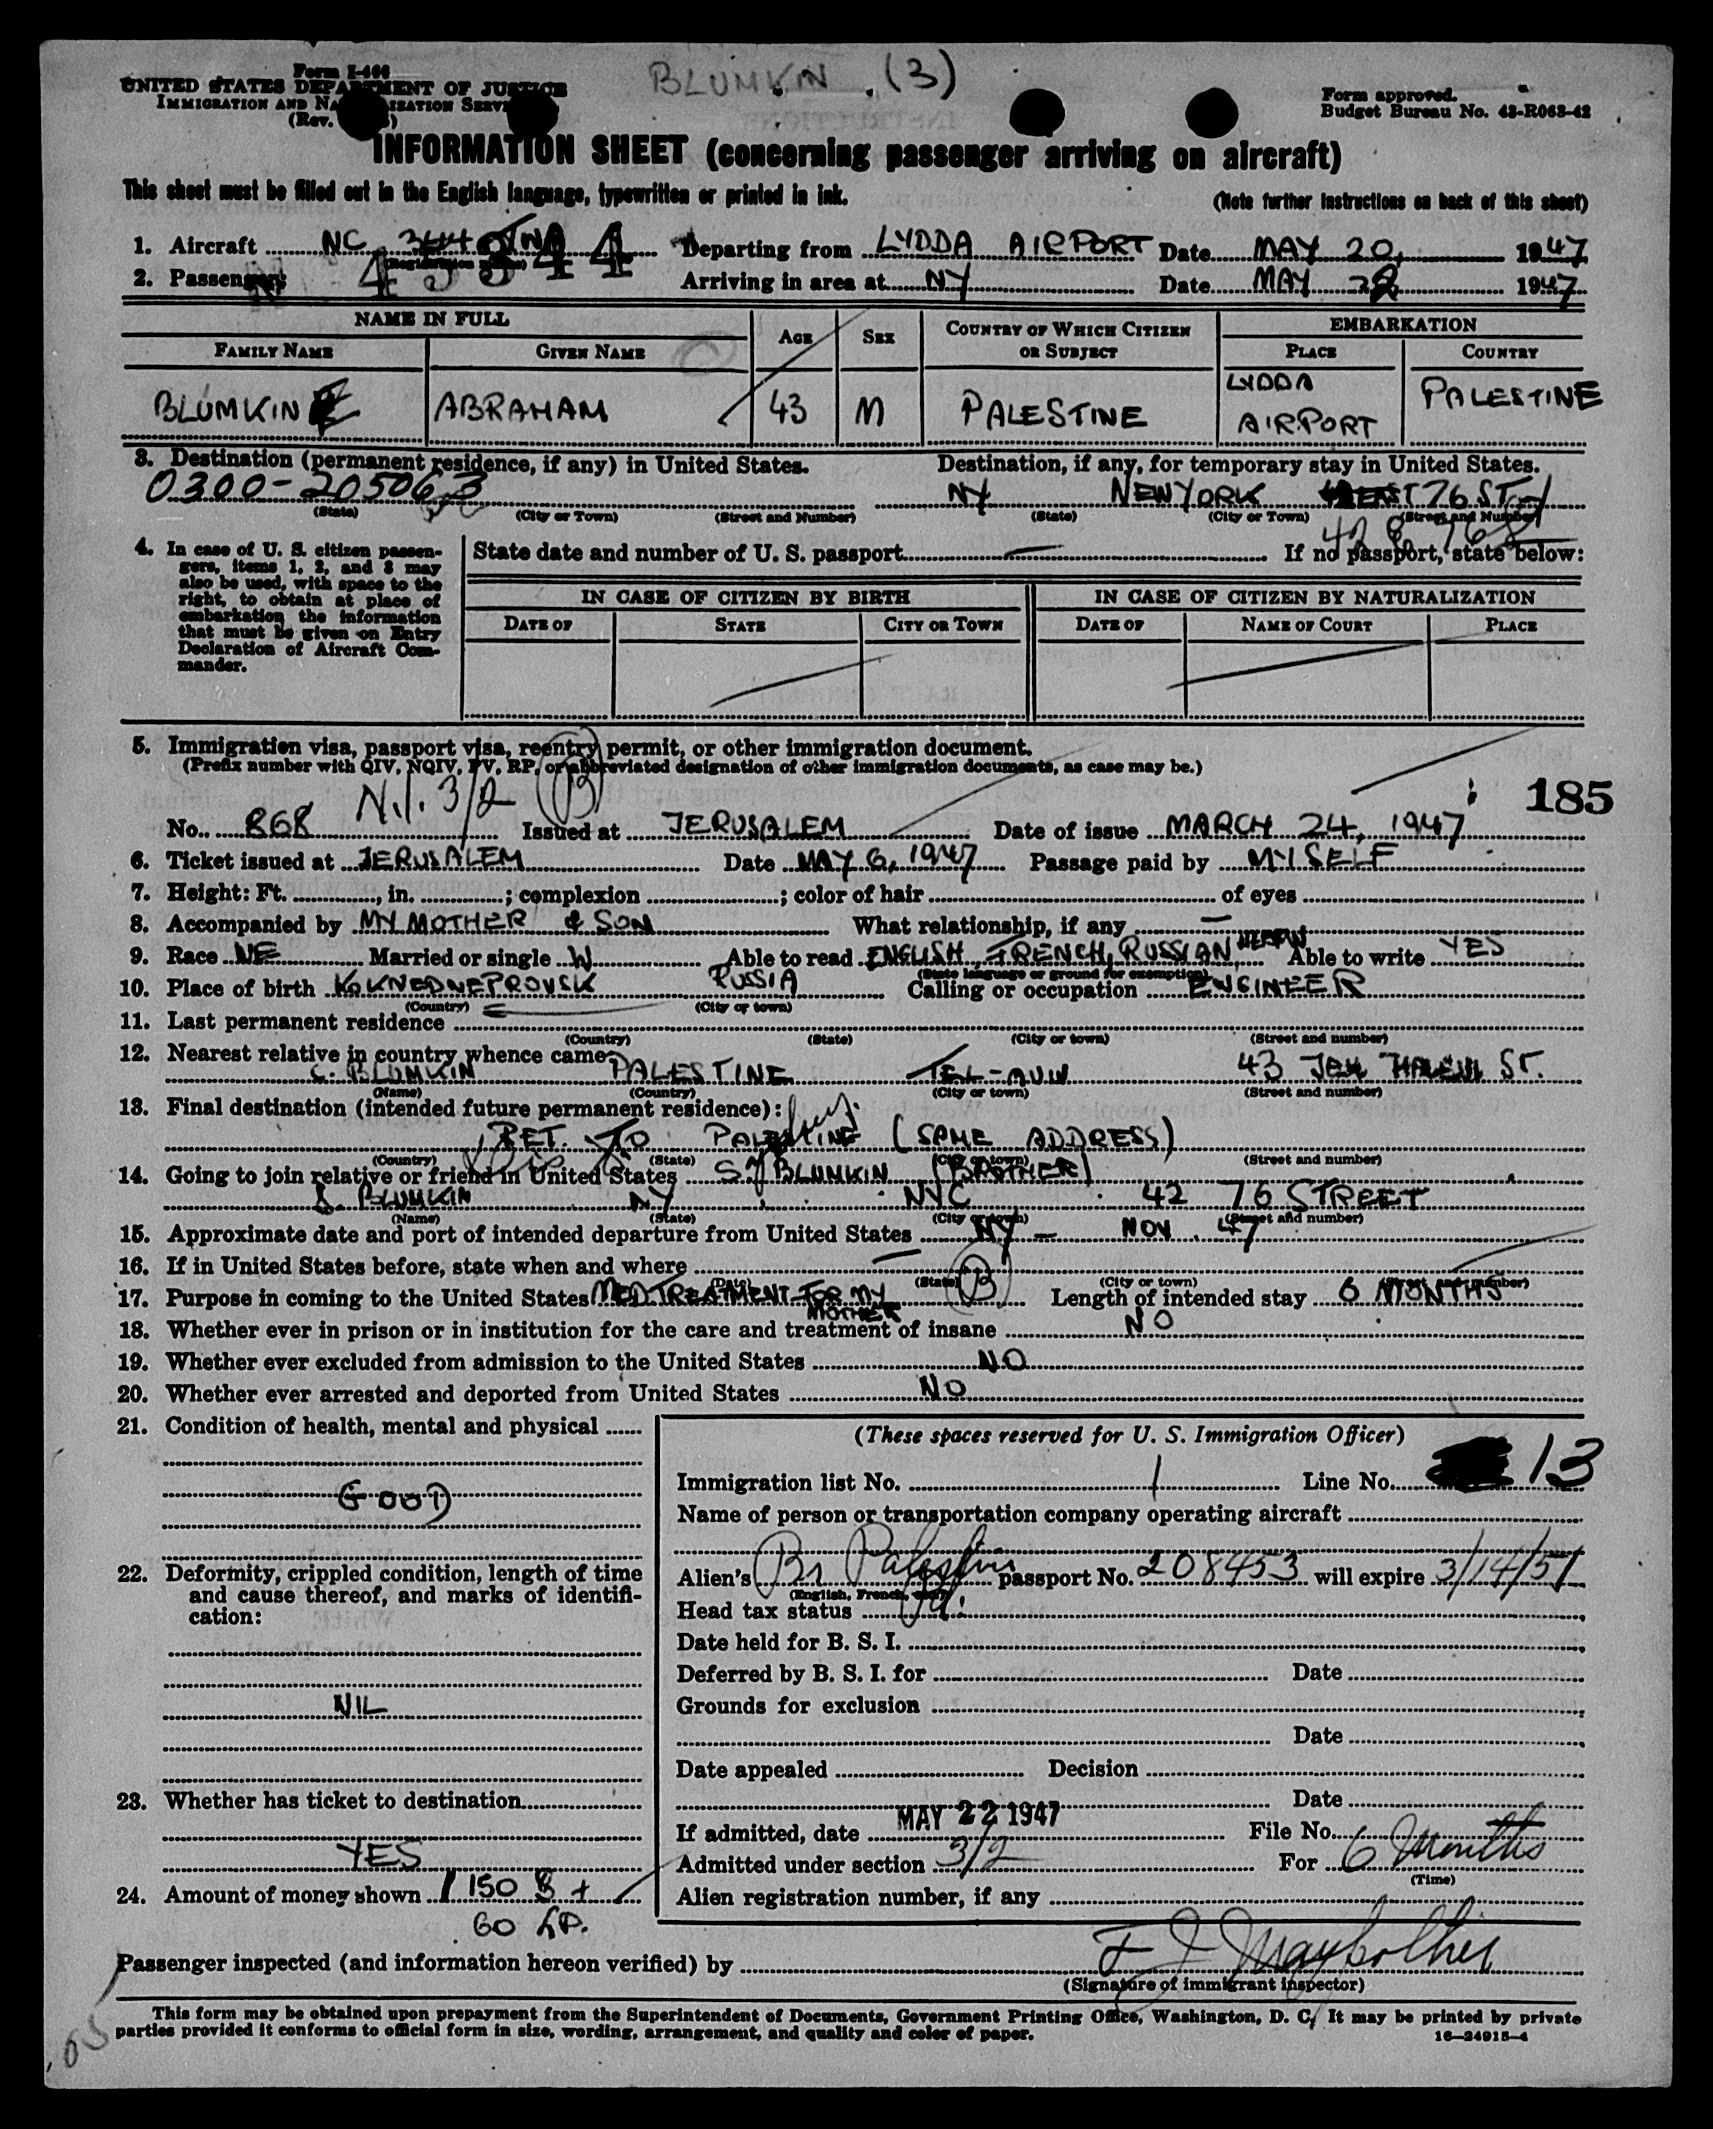 BLUMKIN (3)
Form I-466
UNITED STATES DEPARTMENT OF JUSTICE
IMMIGRATION AND NATURALIZATION SERVICE
(Rev.
Form approved.
Budget Bureau No. 43-R063-42
INFORMATION SHEET (concerning passenger arriving on aircraft)
This sheet must be filled out in the English language, typewritten or printed in ink.
(Note further instructions on back of this sheet)
1. Aircraft NC Departing from LYDDA AIRPORT Date MAY 20, 1947
2. Passenger Arriving in area at NY Date MAY 22 1947
NAME IN FULL AGE SEX COUNTRY OF WHICH CITIZEN OR SUBJECT EMBARKATION
FAMILY NAME GIVEN NAME PLACE COUNTRY
BLUMKIN ABRAHAM 43 M PALESTINE LYDDA AIRPORT PALESTINE
3. Destination (permanent residence, if any) in United States. Destination, if any, for temporary stay in United States.
0300-205063 NY NEWYORK EAST 76 ST
(State) (City or Town) (Street and Number) (State) (City or Town) (Street and Number)
4. In case of U. S. citizen passengers, items 1, 2, and 3 may also be used, with space to the right, to obtain at place of embarkation the information that must be given on Entry Declaration of Aircraft Commander.
State date and number of U. S. passport If no passport, state below:
IN CASE OF CITIZEN BY BIRTH IN CASE OF CITIZEN BY NATURALIZATION
DATE OF STATE CITY OR TOWN DATE OF NAME OF COURT PLACE
5. Immigration visa, passport visa, reentry permit, or other immigration document.
(Prefix number with QIV, NQIV, PV, RP, or abbreviated designation of other immigration documents, as case may be.)
N.I. 3/2 (B) 185
No. 868 Issued at JERUSALEM Date of issue MARCH 24, 1947
6. Ticket issued at JERUSALEM Date MAY 6, 1947 Passage paid by MYSELF
7. Height: Ft. , in. ; complexion ; color of hair of eyes
8. Accompanied by MY MOTHER & SON What relationship, if any —
9. Race Married or single W Able to read ENGLISH, FRENCH, RUSSIAN Able to write YES
(State language or ground for exemption)
10. Place of birth RUSSIA Calling or occupation ENGINEER
(Country) (City or town)
11. Last permanent residence
(Country) (State) (City or town) (Street and number)
12. Nearest relative in country whence came
BLUMKIN PALESTINE TEL-AVIV 43 ST.
(Name) (Country) (City or town) (Street and number)
13. Final destination (intended future permanent residence):
RET. TO PALESTINE (SAME ADDRESS)
(Country) (State) (City or town) (Street and number)
14. Going to join relative or friend in United States BLUMKIN (BROTHER)
BLUMKIN NY NYC 42 76 STREET
(Name) (State) (City or town) (Street and number)
15. Approximate date and port of intended departure from United States NY — NOV. 47
16. If in United States before, state when and where —
(Date) (State) (City or town) (Street and number)
17. Purpose in coming to the United States MED TREATMENT FOR MY MOTHER (B) Length of intended stay 6 MONTHS
18. Whether ever in prison or in institution for the care and treatment of insane NO
19. Whether ever excluded from admission to the United States NO
20. Whether ever arrested and deported from United States NO
21. Condition of health, mental and physical
GOOD
22. Deformity, crippled condition, length of time and cause thereof, and marks of identification:
NIL
23. Whether has ticket to destination
YES
24. Amount of money shown 150 $ +
60 LP.
(These spaces reserved for U. S. Immigration Officer)
Immigration list No. 1 Line No. 13
Name of person or transportation company operating aircraft
Alien's Br Palestine passport No. 208453 will expire 3/14/51
(English, French, etc.)
Head tax status
Date held for B. S. I.
Deferred by B. S. I. for Date
Grounds for exclusion
Date
Date appealed Decision
Date
If admitted, date MAY 22 1947 File No.
Admitted under section 3/2 For 6 Months
(Time)
Alien registration number, if any
Passenger inspected (and information hereon verified) by
(Signature of immigrant inspector)
This form may be obtained upon prepayment from the Superintendent of Documents, Government Printing Office, Washington, D. C. It may be printed by private
parties provided it conforms to official form in size, wording, arrangement, and quality and color of paper.
16—24915-4